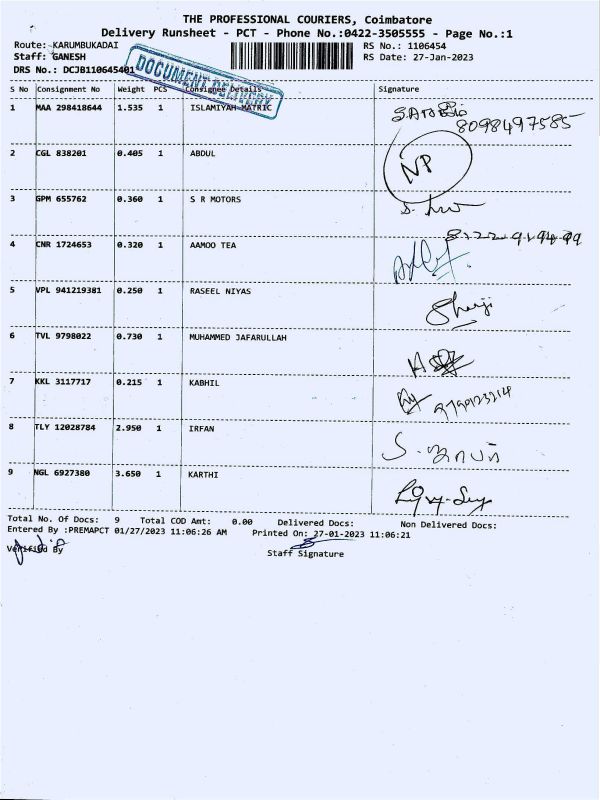 THE PROFESSIONAL COURIERS, Coimbatore
Delivery Runsheet - PCT - Phone No.:0422-3505555 - Page No.:1
Route: KARUMBUKADAI RS No.: 1106454
Staff: GANESH RS Date: 27-Jan-2023
DRS No.: DCJB110645401
DOCUMENT DELIVERY
S No Consignment No Weight PCS Consignee Details Signature
1 MAA 298418644 1.535 1 ISLAMIYAH MATRIC
8098497585
2 CGL 838201 0.405 1 ABDUL NP
3 GPM 655762 0.360 1 S R MOTORS
4 CNR 1724653 0.320 1 AAMOO TEA
5 VPL 941219381 0.250 1 RASEEL NIYAS
6 TVL 9798022 0.730 1 MUHAMMED JAFARULLAH
7 KKL 3117717 0.215 1 KABHIL
8 TLY 12028784 2.950 1 IRFAN
9 NGL 6927380 3.650 1 KARTHI
Total No. Of Docs: 9 Total COD Amt: 0.00 Delivered Docs: Non Delivered Docs:
Entered By :PREMAPCT 01/27/2023 11:06:26 AM Printed On: 27-01-2023 11:06:21
Verified By
Staff Signature